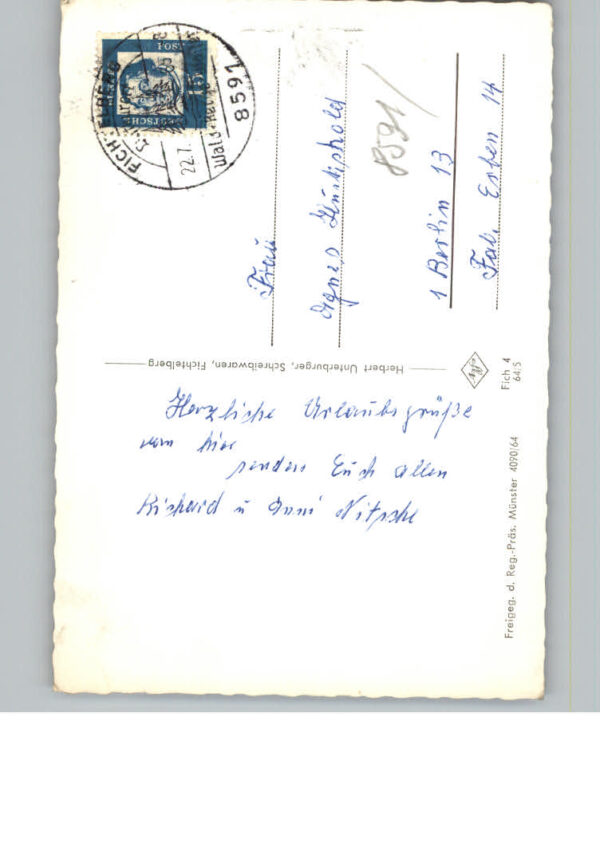 Herzliche Urlaubsgrüße
von hier
senden Euch allen
Richard u Anni Nitsche
Frau
Agnes
1 Berlin 13
8591/
8591
22.7.
DEUTSCHE
15
Herbert Unterburger, Schreibwaren, Fichtelberg
Fich 4
64.5
Freigeg. d. Reg.-Präs. Münster 4090/64